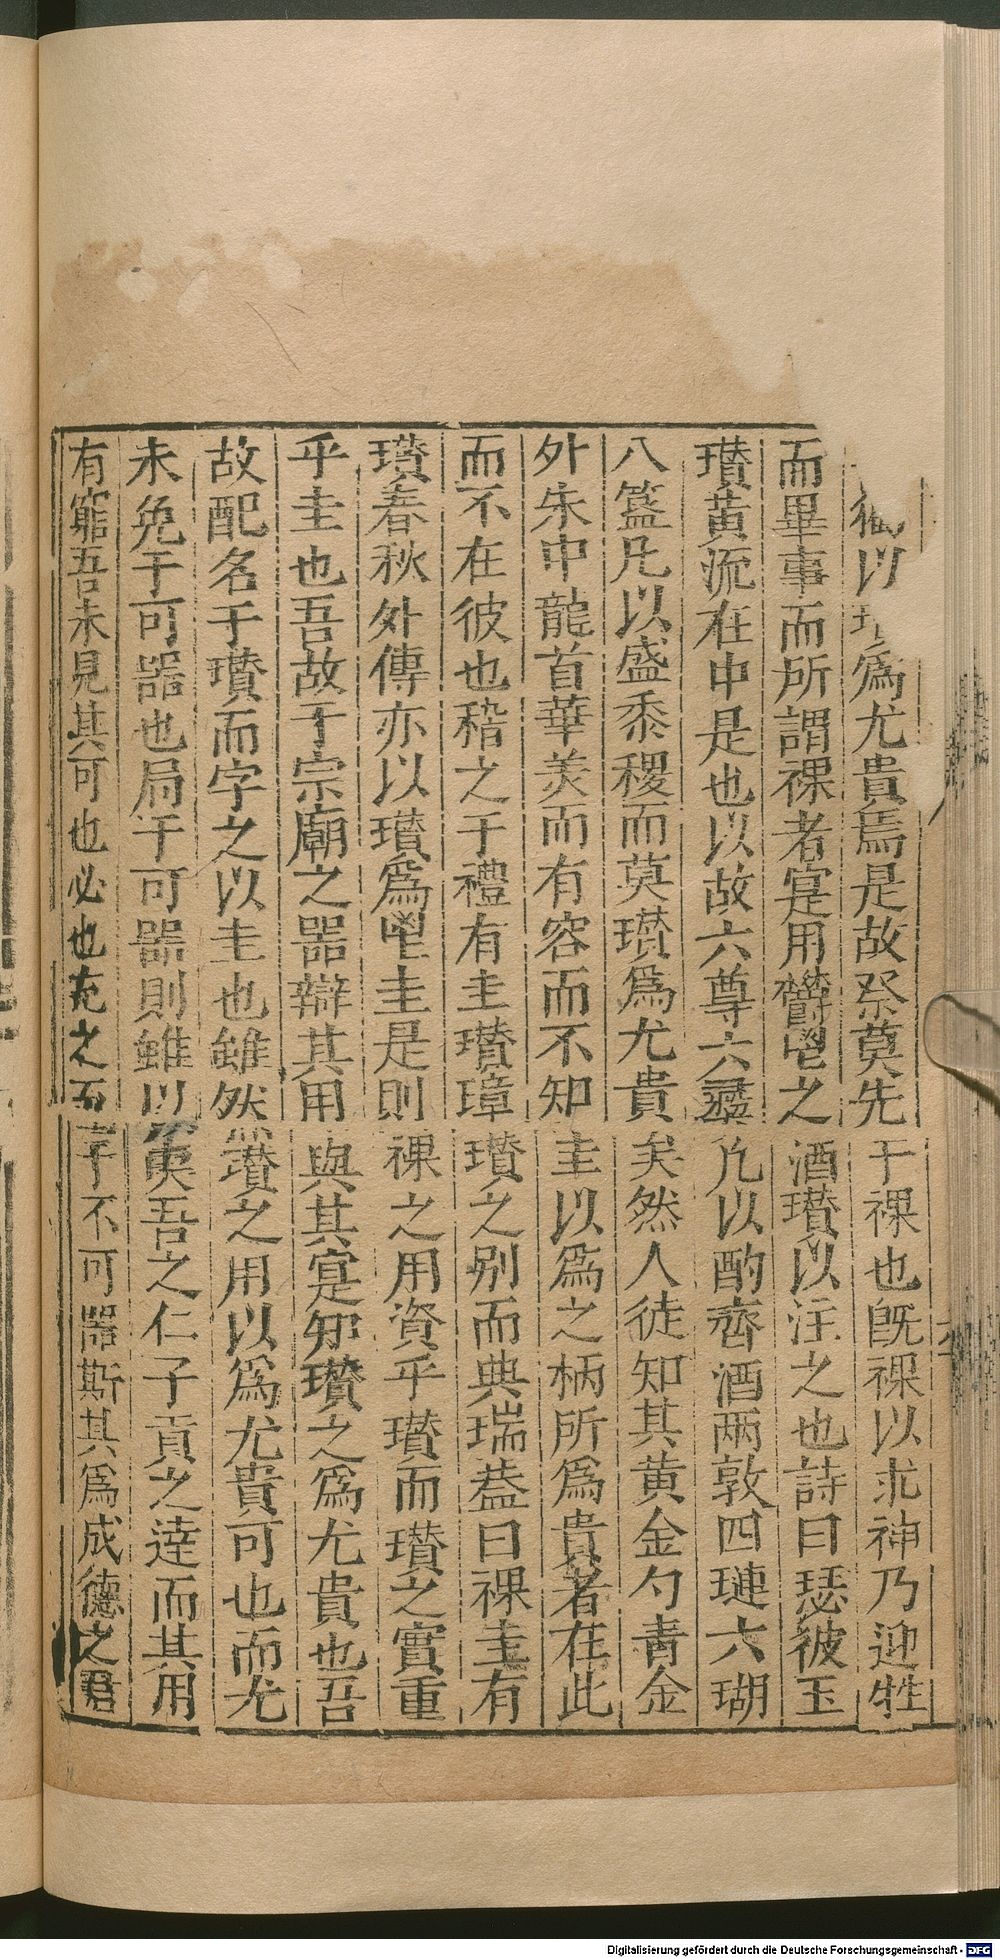 以爲尤貴焉是故祭莫先于祼也旣祼以求神乃迎牲
而畢事而所謂祼者寔用欎鬯之酒瓚以注之也詩曰瑟彼玉
瓚黄流在中是也以故六尊六彞凢以酌齊酒兩敦四璉六瑚
八簋凢以盛黍稷而莫瓚爲尤貴矣然人徒知其黄金勺青金
外朱中龍首華美而有容而不知圭以爲之柄所爲貴者在此
而不在彼也稽之于禮有圭瓚璋瓚之别而典瑞葢曰祼圭有
瓚春秋外傳亦以瓚爲鬯圭是則祼之用資乎瓚而瓚之實重
乎圭也吾故于宗廟之器辯其用與其寔知瓚之爲尤貴也吾
故配名于瓚而字之以圭也雖然瓚之用以爲尤貴可也而尤
未免于可器也局于可器則雖以夷吾之仁子貢之逹而其用
有窮吾未見其可也必也充之而至于不可器斯其爲成德之君
Digitalisierung gefördert durch die Deutsche Forschungsgemeinschaft - DFG